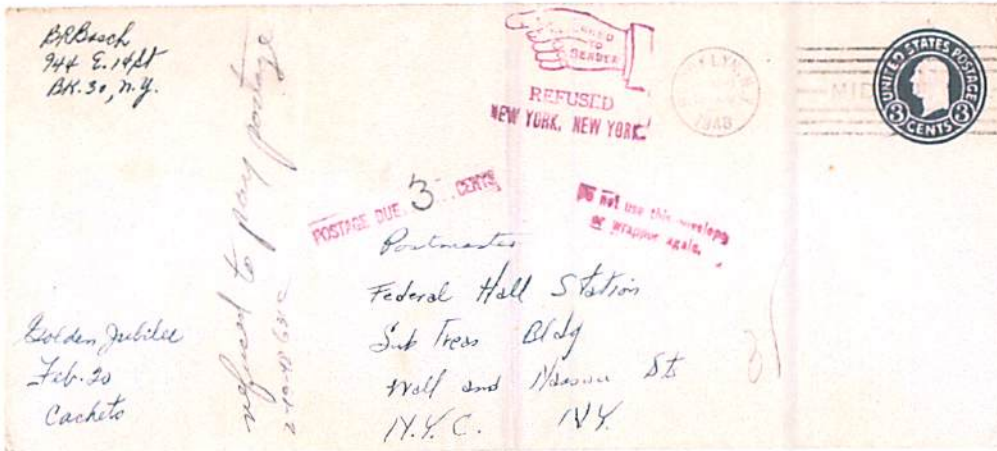 BRBosch
944 E. 14 St
BK. 30, N.Y.
RETURNED
TO
SENDER
REFUSED
NEW YORK, NEW YORK.
BROOKLYN, N.Y.
1948
MID
UNITED STATES POSTAGE
3 CENTS 3
refused to pay postage
POSTAGE DUE 3 CENTS
Do not use this envelope
or wrapper again.
Postmaster
Federal Hall Station
Sub Treas Bldg
Wall and Nassau Sts
N.Y.C. NY.
Golden Jubilee
Feb. 20
Cachets